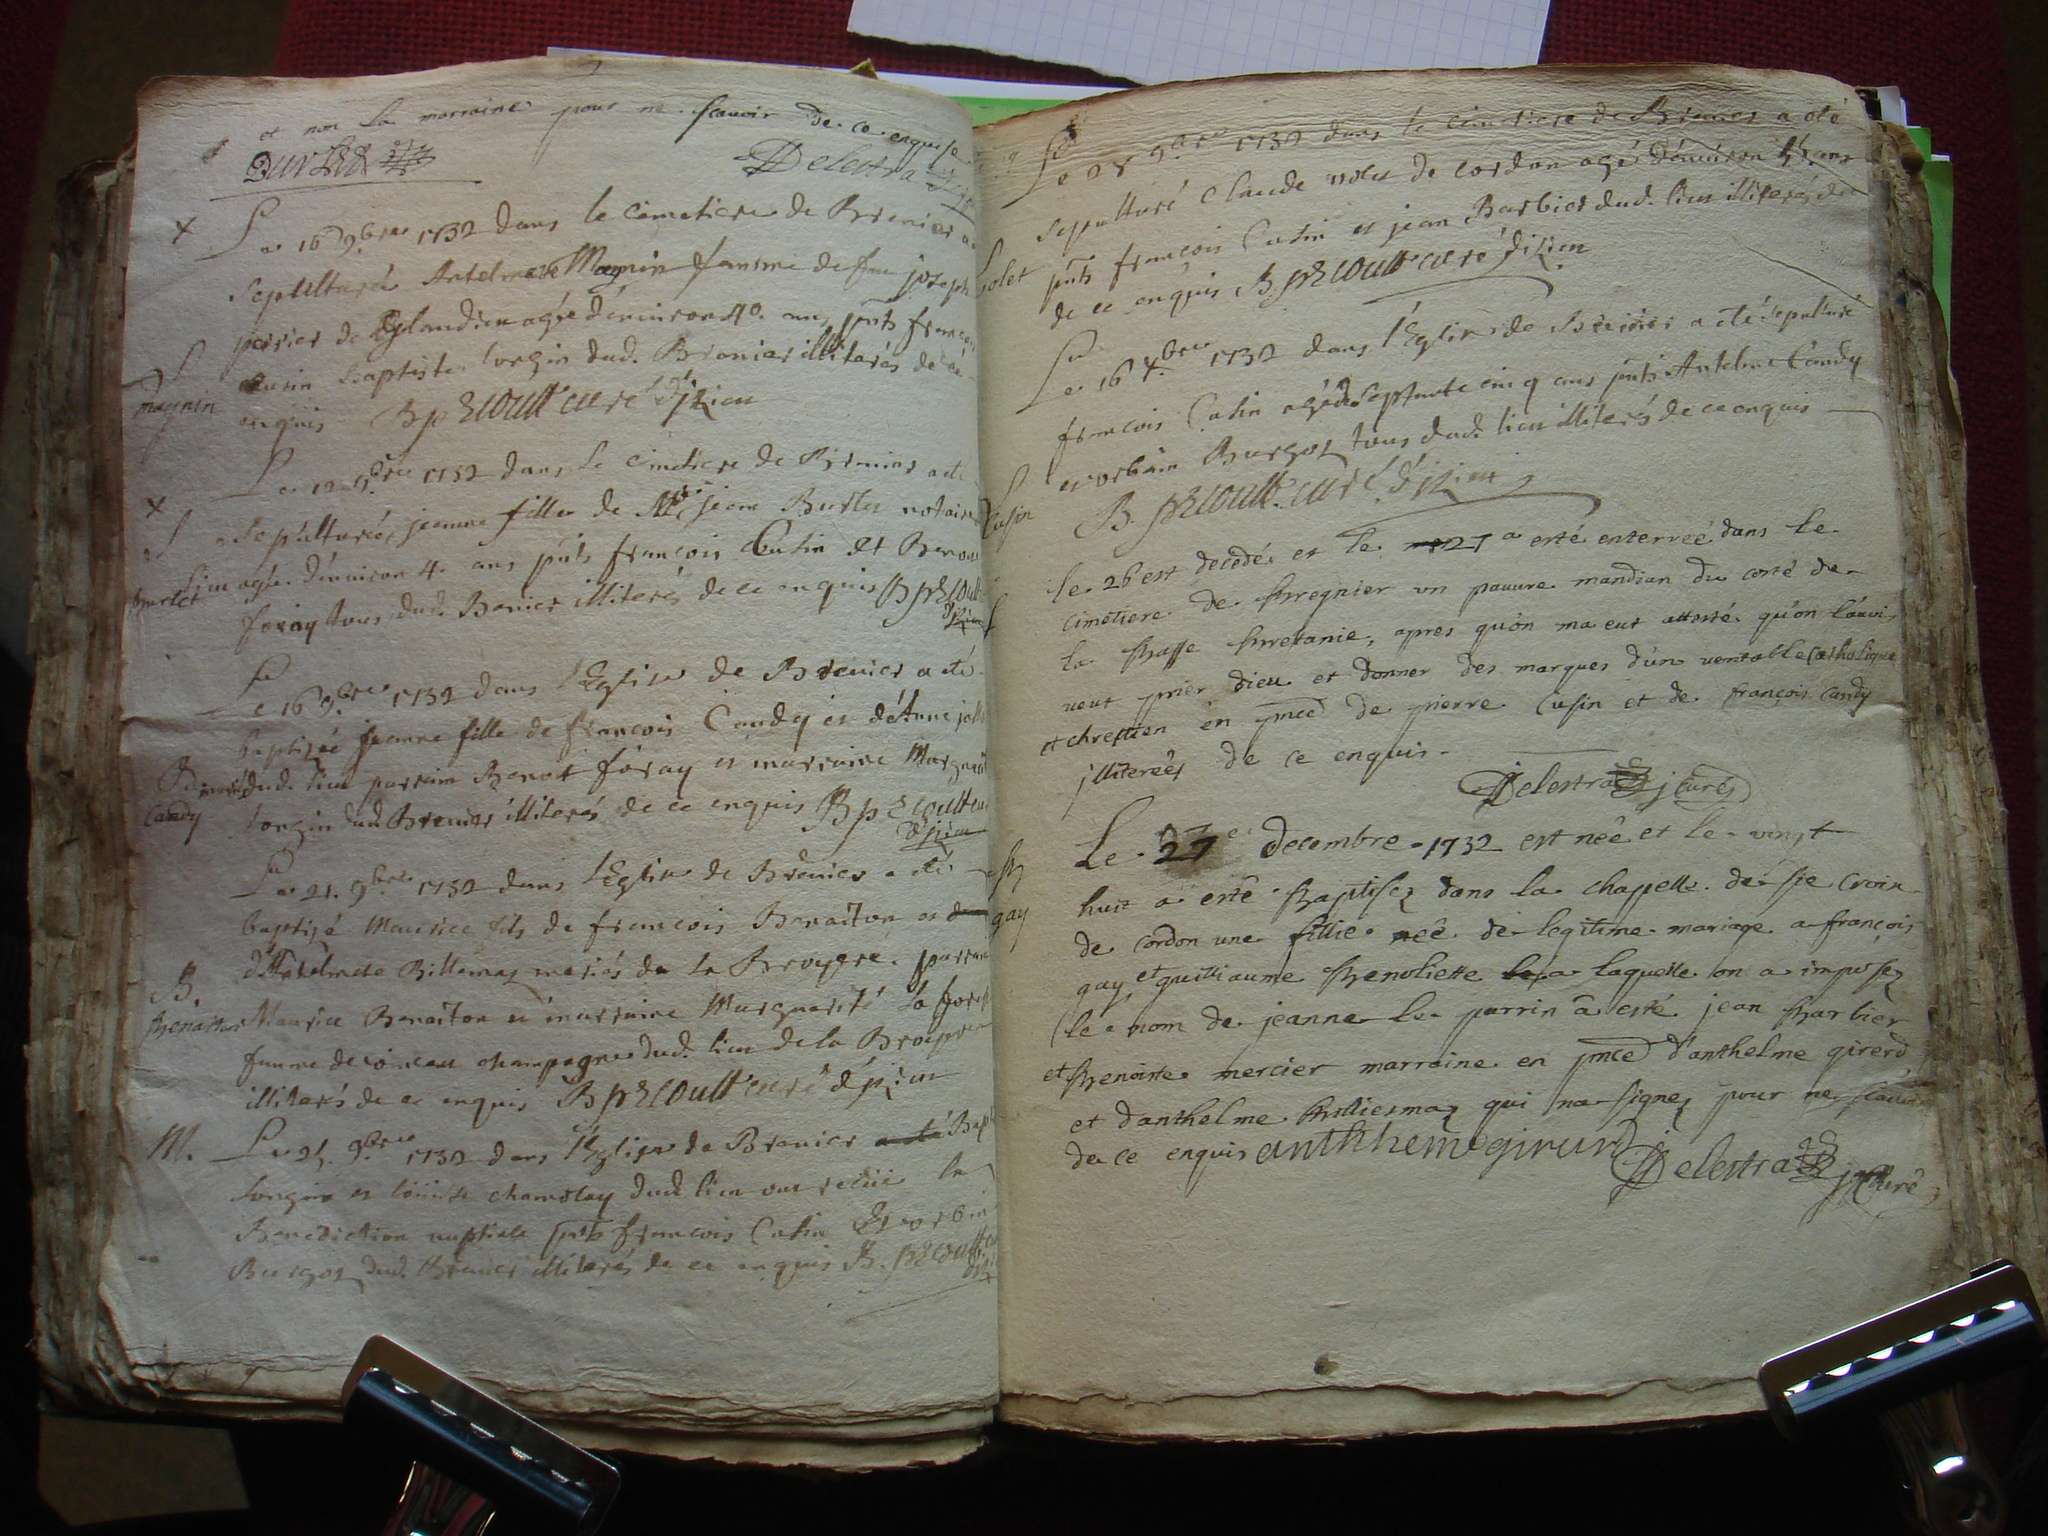 et non la marraine pour ne scavoir de ce enquise
Delestra
Le 16 9bre 1732 dans le cimetiere de Brenier a
sepulturé Antelmete Magnin famme de feu joseph
perrier de Glandieu agée d'environ 40. ans, pnts francois
Cusin baptiste longin dud. Brenier illiterés de ce
enquis B precoult curé d'jzieu
magnin
Le 12 9bre 1732 dans le cimetiere de Brenier a eté
sepulturée, jeanne fille de Me jean Burlet notaire
lieu agée d'environ 4. ans pnts francois Cusin et Benoit
foray tous dud. Brenier illiterés de ce enquis B precoult
d'jzieu
burlet
Le 16 9bre 1732 dans l'Eglise de Brenier a eté
baptizée jeanne fille de francois Candy et d'etiennette
mariés dud. lieu parrain Benoit foray et marraine Marguerite
longin dud. Brenier illiterés de ce enquis B precoult curé
d'jzieu
B
Candy
Le 21. 9bre 1732 dans l'Eglise de Brenier a eté
baptizé Maurice fils de francois Benaiton et
d'Antelmete Billemaz mariés de la Bruyere. parrain
Maurice Benaiton et marraine Marguerite la forest
femme de champagne dud. lieu de la Bruyere
illiterés de ce enquis B precoult curé d'jzieu
B.
Benaiton
M. Le 25. 9bre 1732 dans l'Eglise de Brenier a eté Bapt
longin et louise chamolay dud. lieu ont recue la
Benediction nuptiale pnts francois Cusin Et orbin
Burgos dud. Brenier illiterés de ce enquis B. precoult curé
Le 28 9bre 1732 dans le cimetiere de Brenier a eté
sepulturé Claude nolet de cordon agé d'environ ans
pnts francois Cusin et jean Barbier dud. lieu illiterés de
de ce enquis B. precoult curé d'jzieu
nolet
Le 16 Xbre 1732 dans l'Eglise de Brenier a eté sepulturé
francois Cusin agé de septante cinq ans pnts Antelme Candy
et orbain Burgos tous dud. lieu illiterés de ce enquis
B. precoult. curé d'jzieu
Cusin
le 26 est decedé et le 27 a esté enterreé dans le
cimetiere de Bregnier un pauure mandian du costé de
la Basse Bretanie, apres qu'on ma eut attesté qu'on l'auoi
veut prier dieu et donner des marques d'un veritable Catholique
et chrestien en pnce de pierre Cusin et de françois Candy
jlliterées de ce enquis.
Delestra curé
Le 27e decembre 1732 est neê et le vingt
huit a esté Baptisez dans la chapelle de Ste Croix
de cordon une fillie neê de legitime mariage a françois
gay et guilliaume Benoliette a laquelle on a imposez
le nom de jeanne le parrin a esté jean Barbier
et Benoiste mercier marraine en pnce d'anthelme girerd
et d'anthelme Billiemaz qui na signez pour ne scavoir
de ce enquis anthhemegirurd
Delestra curé
gay